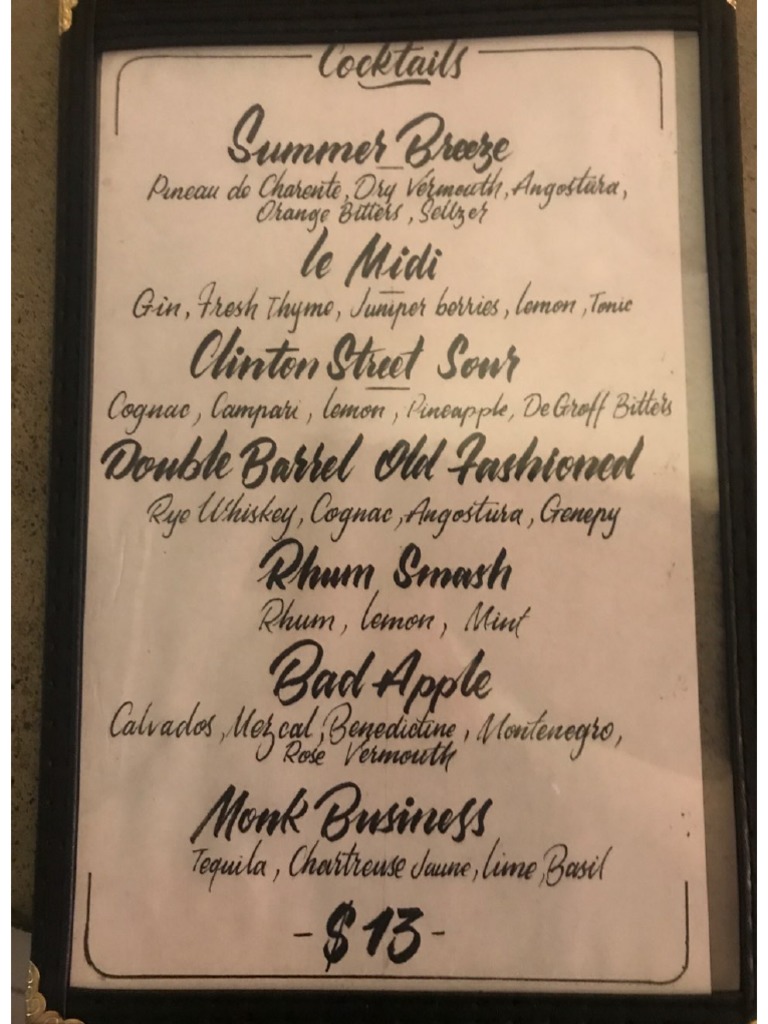 Cocktails
Summer Breeze
Pineau de Charente, Dry Vermouth, Angostura,
Orange Bitters, Seltzer
le Midi
Gin, Fresh Thyme, Juniper berries, lemon, Tonic
Clinton Street Sour
Cognac, Campari, lemon, Pineapple, De Groff Bitters
Double Barrel Old Fashioned
Rye Whiskey, Cognac, Angostura, Genepy
Rhum Smash
Rhum, lemon, Mint
Bad Apple
Calvados, Mezcal, Benedictine, Montenegro,
Rose Vermouth
Monk Business
Tequila, Chartreuse Jaune, lime, Basil
- $13 -